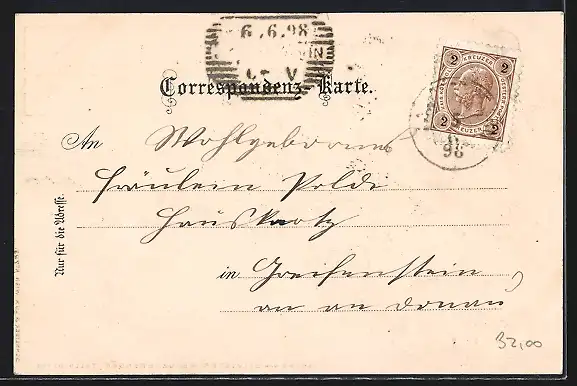 6.6.98
IN
V
Correspondenz-Karte.
2 KREUZER 2
2 KREUZER 2
98
An Wohlgeboren
Fräulein Poldi
in Greifenstein
an an Donau
Nur für die Adresse.
32,00